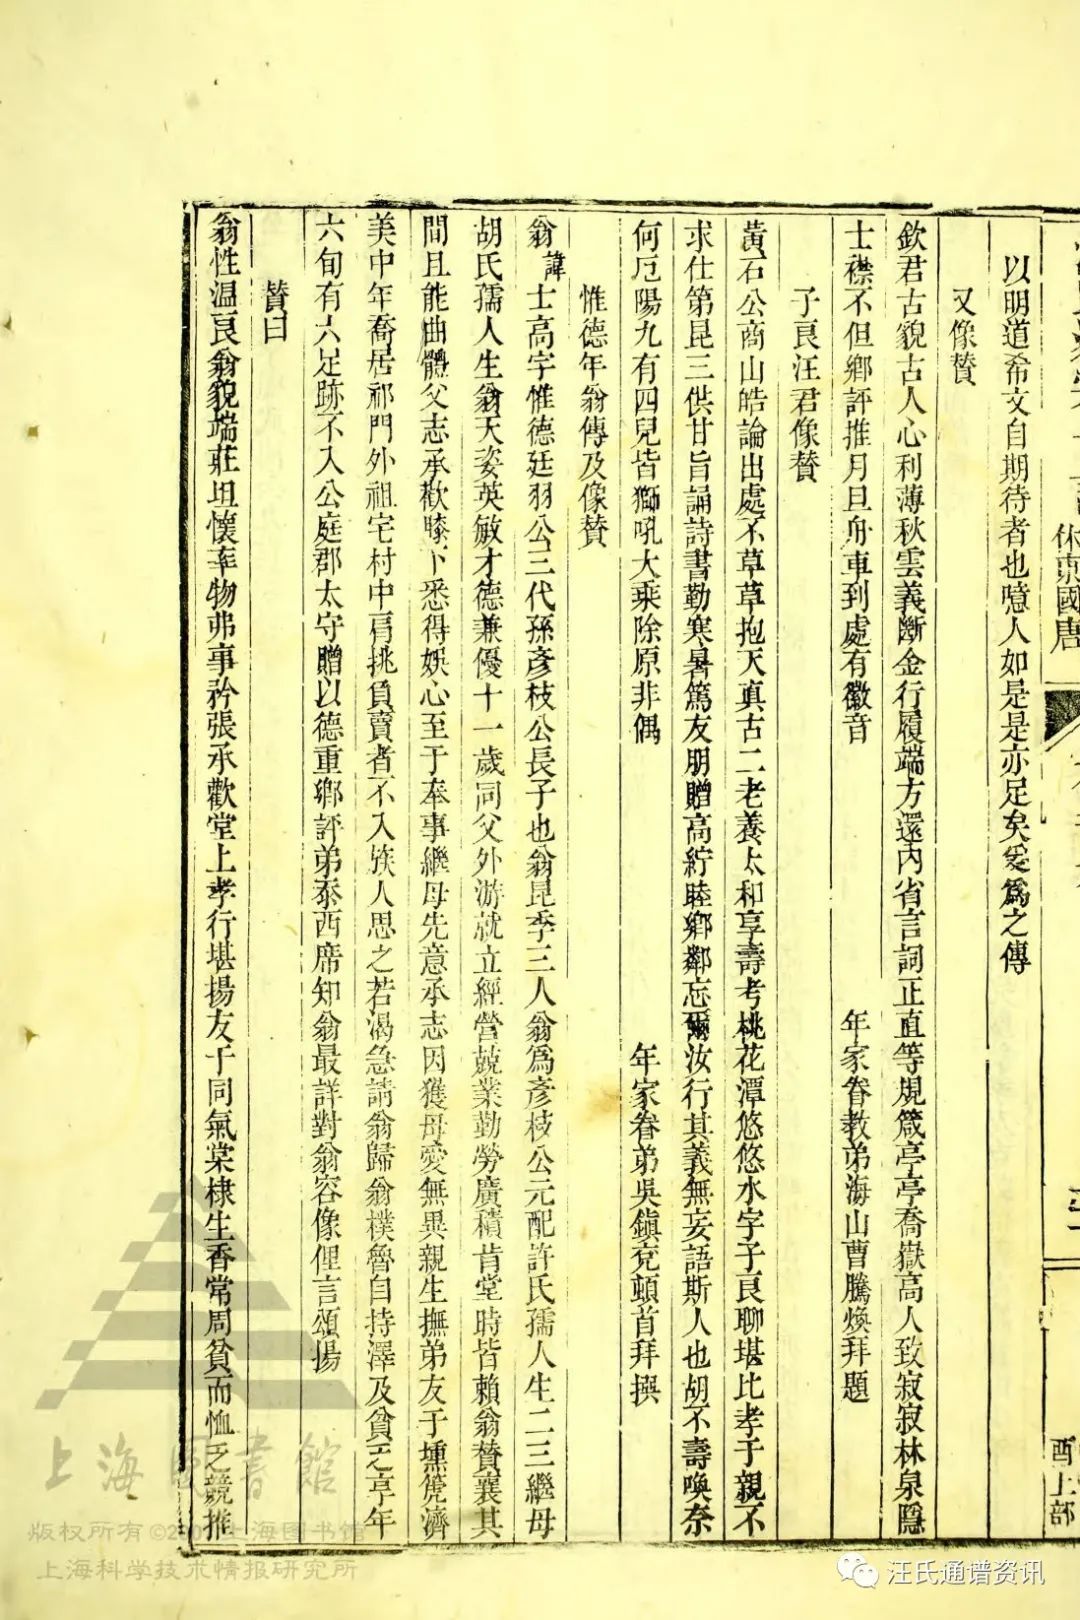 休京國唐
酉上部
以明道希文自期待者也噫人如是是亦足矣爰爲之傳
又像贊
欽君古貌古人心利薄秋雲義斷金行履端方還內省言詞正直等規箴亭亭喬嶽高人致寂寂林泉隱
士襟不但鄉評推月旦舟車到處有徽音　年家眷教弟海山曹騰煥拜題
子良汪君像贊
黃石公商山皓論出處不草草抱天眞古二老養太和享壽考桃花潭悠悠水字子良聊堪比孝于親不
求仕第昆三供甘旨誦詩書勤寒暑篤友朋贈高紵睦鄉鄰忘爾汝行其義無妄語斯人也胡不壽喚奈
何厄陽九有四兒皆獅吼大乘除原非偶　年家眷弟吳鎭兗頓首拜撰
惟德年翁傳及像贊
翁諱士高字惟德廷羽公三代孫彥枝公長子也翁昆季三人翁爲彥枝公元配許氏孺人生二三繼母
胡氏孺人生翁天姿英敏才德兼優十一歲同父外游就立經營兢業勤勞廣積肯堂時皆賴翁贊襄其
間且能曲體父志承歡膝下悉得娛心至于奉事繼母先意承志因獲母愛無異親生撫弟友于壎箎濟
美中年喬居祁門外祖宅村中肩挑負賣者不入族人思之若渴急請翁歸翁樸魯自持澤及貧乏享年
六旬有六足跡不入公庭郡太守贈以德重鄉評弟忝西席知翁最詳對翁容像俚言頌揚
贊曰
翁性溫良翁貌端莊坦懷率物弗事矜張承歡堂上孝行堪揚友于同氣棠棣生香常周貧而恤乏競推
上海圖書館
版权所有©上海图书馆
上海科学技术情报研究所
汪氏通谱资讯